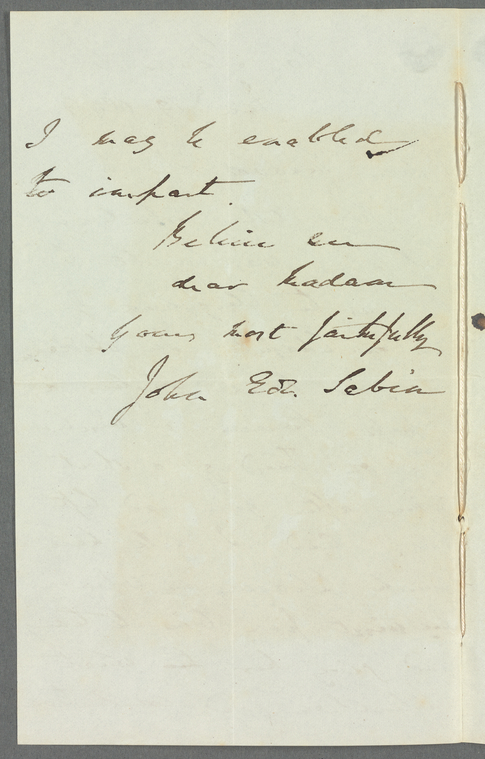 I may be enabled
to impart.
Believe me
dear Madam
Yours most faithfully
John Edw. Sabin